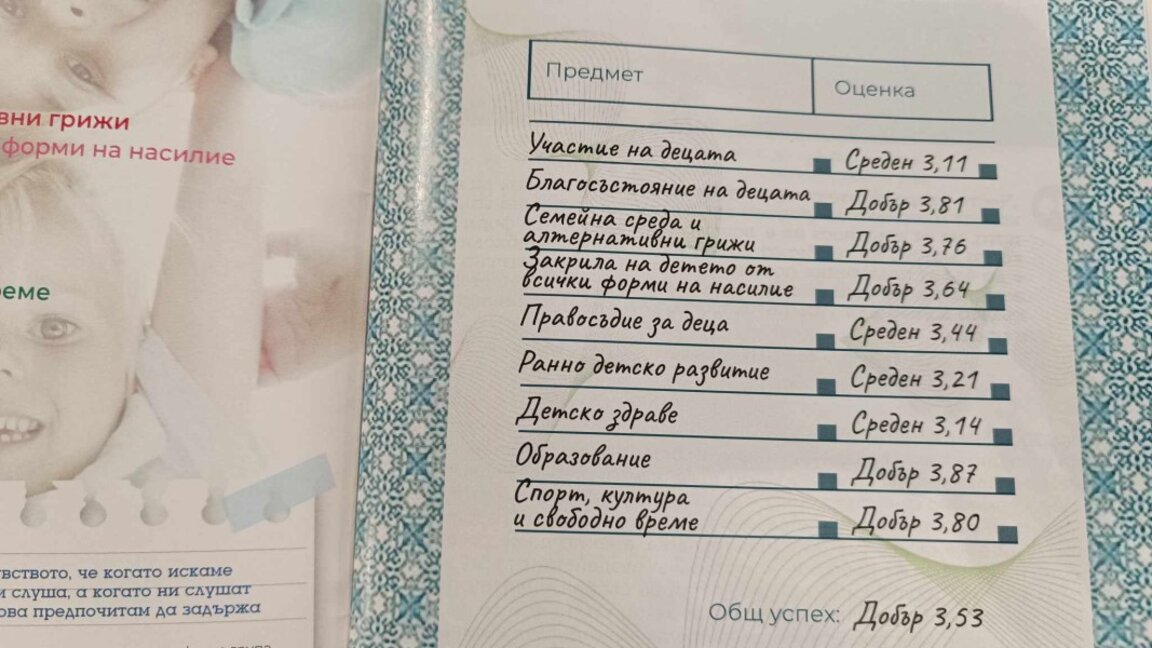 вни грижи
форми на насилие
реме
вството, че когато искаме
и слуша, а когато ни слушат
ова предпочитам да задържа
Предмет Оценка
Участие на децата Среден 3,11
Благосъстояние на децата Добър 3,81
Семейна среда и
алтернативни грижи Добър 3,76
Закрила на детето от
всички форми на насилие Добър 3,64
Правосъдие за деца Среден 3,44
Ранно детско развитие Среден 3,21
Детско здраве Среден 3,14
Образование Добър 3,87
Спорт, култура
и свободно време Добър 3,80
Общ успех: Добър 3,53